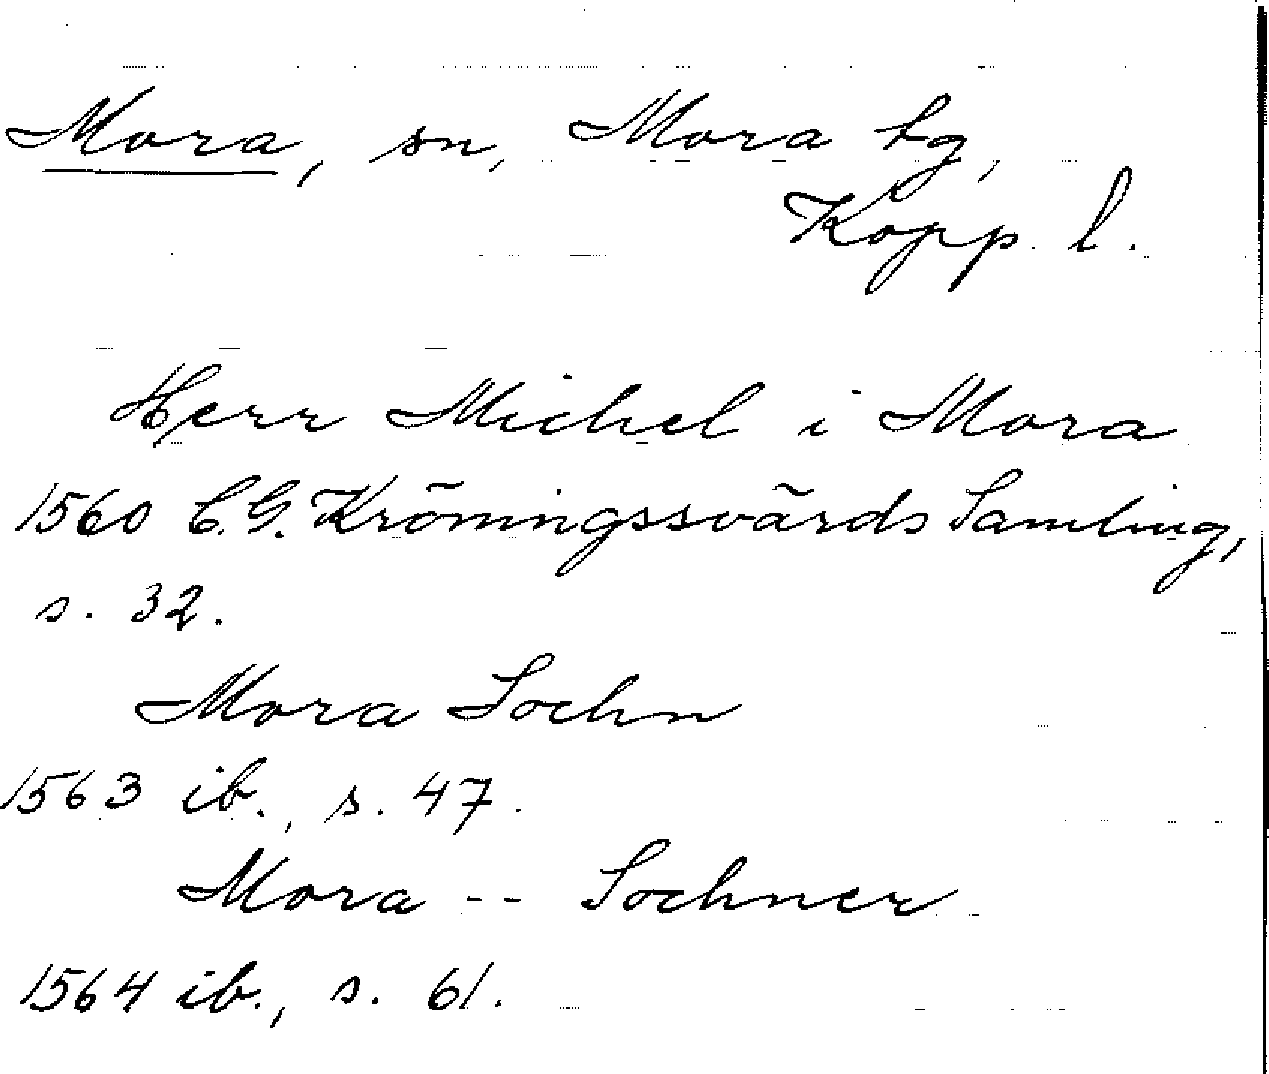 Mora, sn, Mora tg,
Kopp. l.
Herr Michel i Mora
1560 C.G. Kröningssvärds Samling,
s. 32.
Mora Sochn
1563 ib., s. 47.
Mora -- Sochner
1564 ib., s. 61.